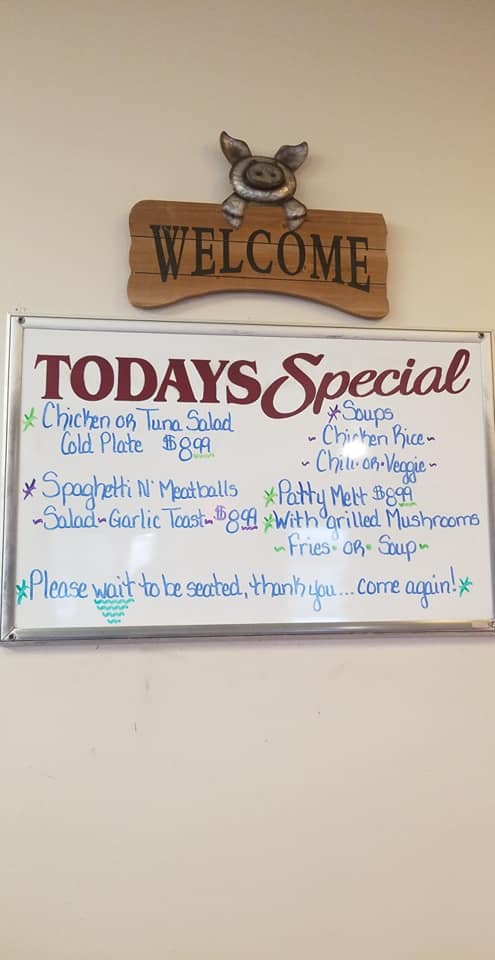 WELCOME
TODAYS Special
Chicken or Tuna Salad
Cold Plate $8.99
Spaghetti N' Meatballs
~Salad~Garlic Toast~$8.99
Soups
~Chicken Rice~
~Chili·or·Veggie~
Patty Melt $8.99
With grilled Mushrooms
~Fries·or·Soup~
Please wait to be seated, thank you... come again!